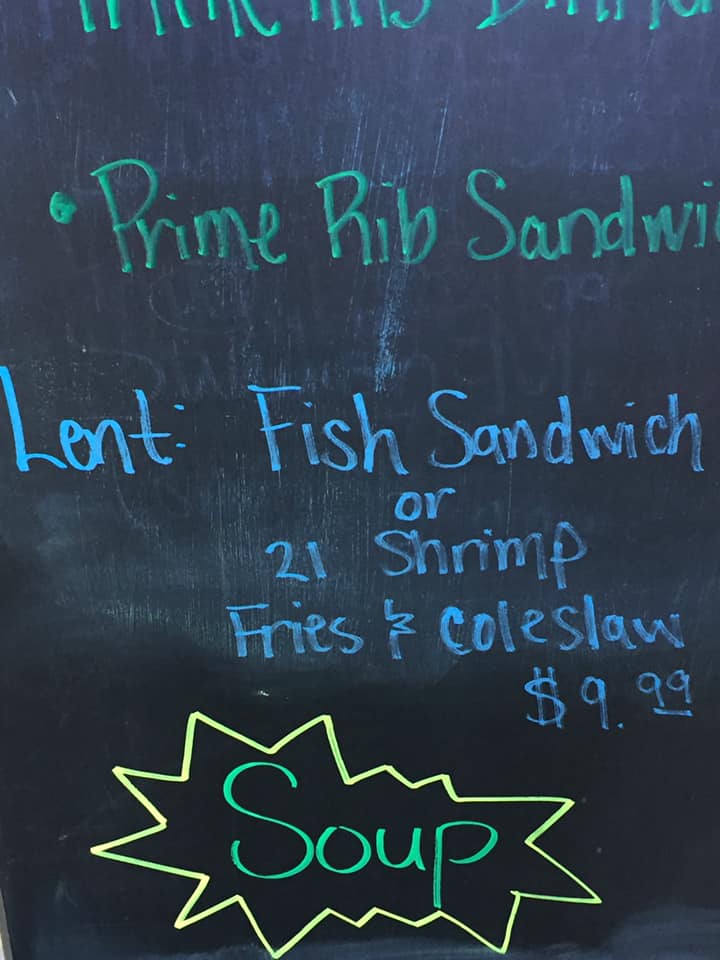 • Prime Rib Sandwi
Lent: Fish Sandwich
or
21 Shrimp
Fries & Coleslaw
$9.99
Soup